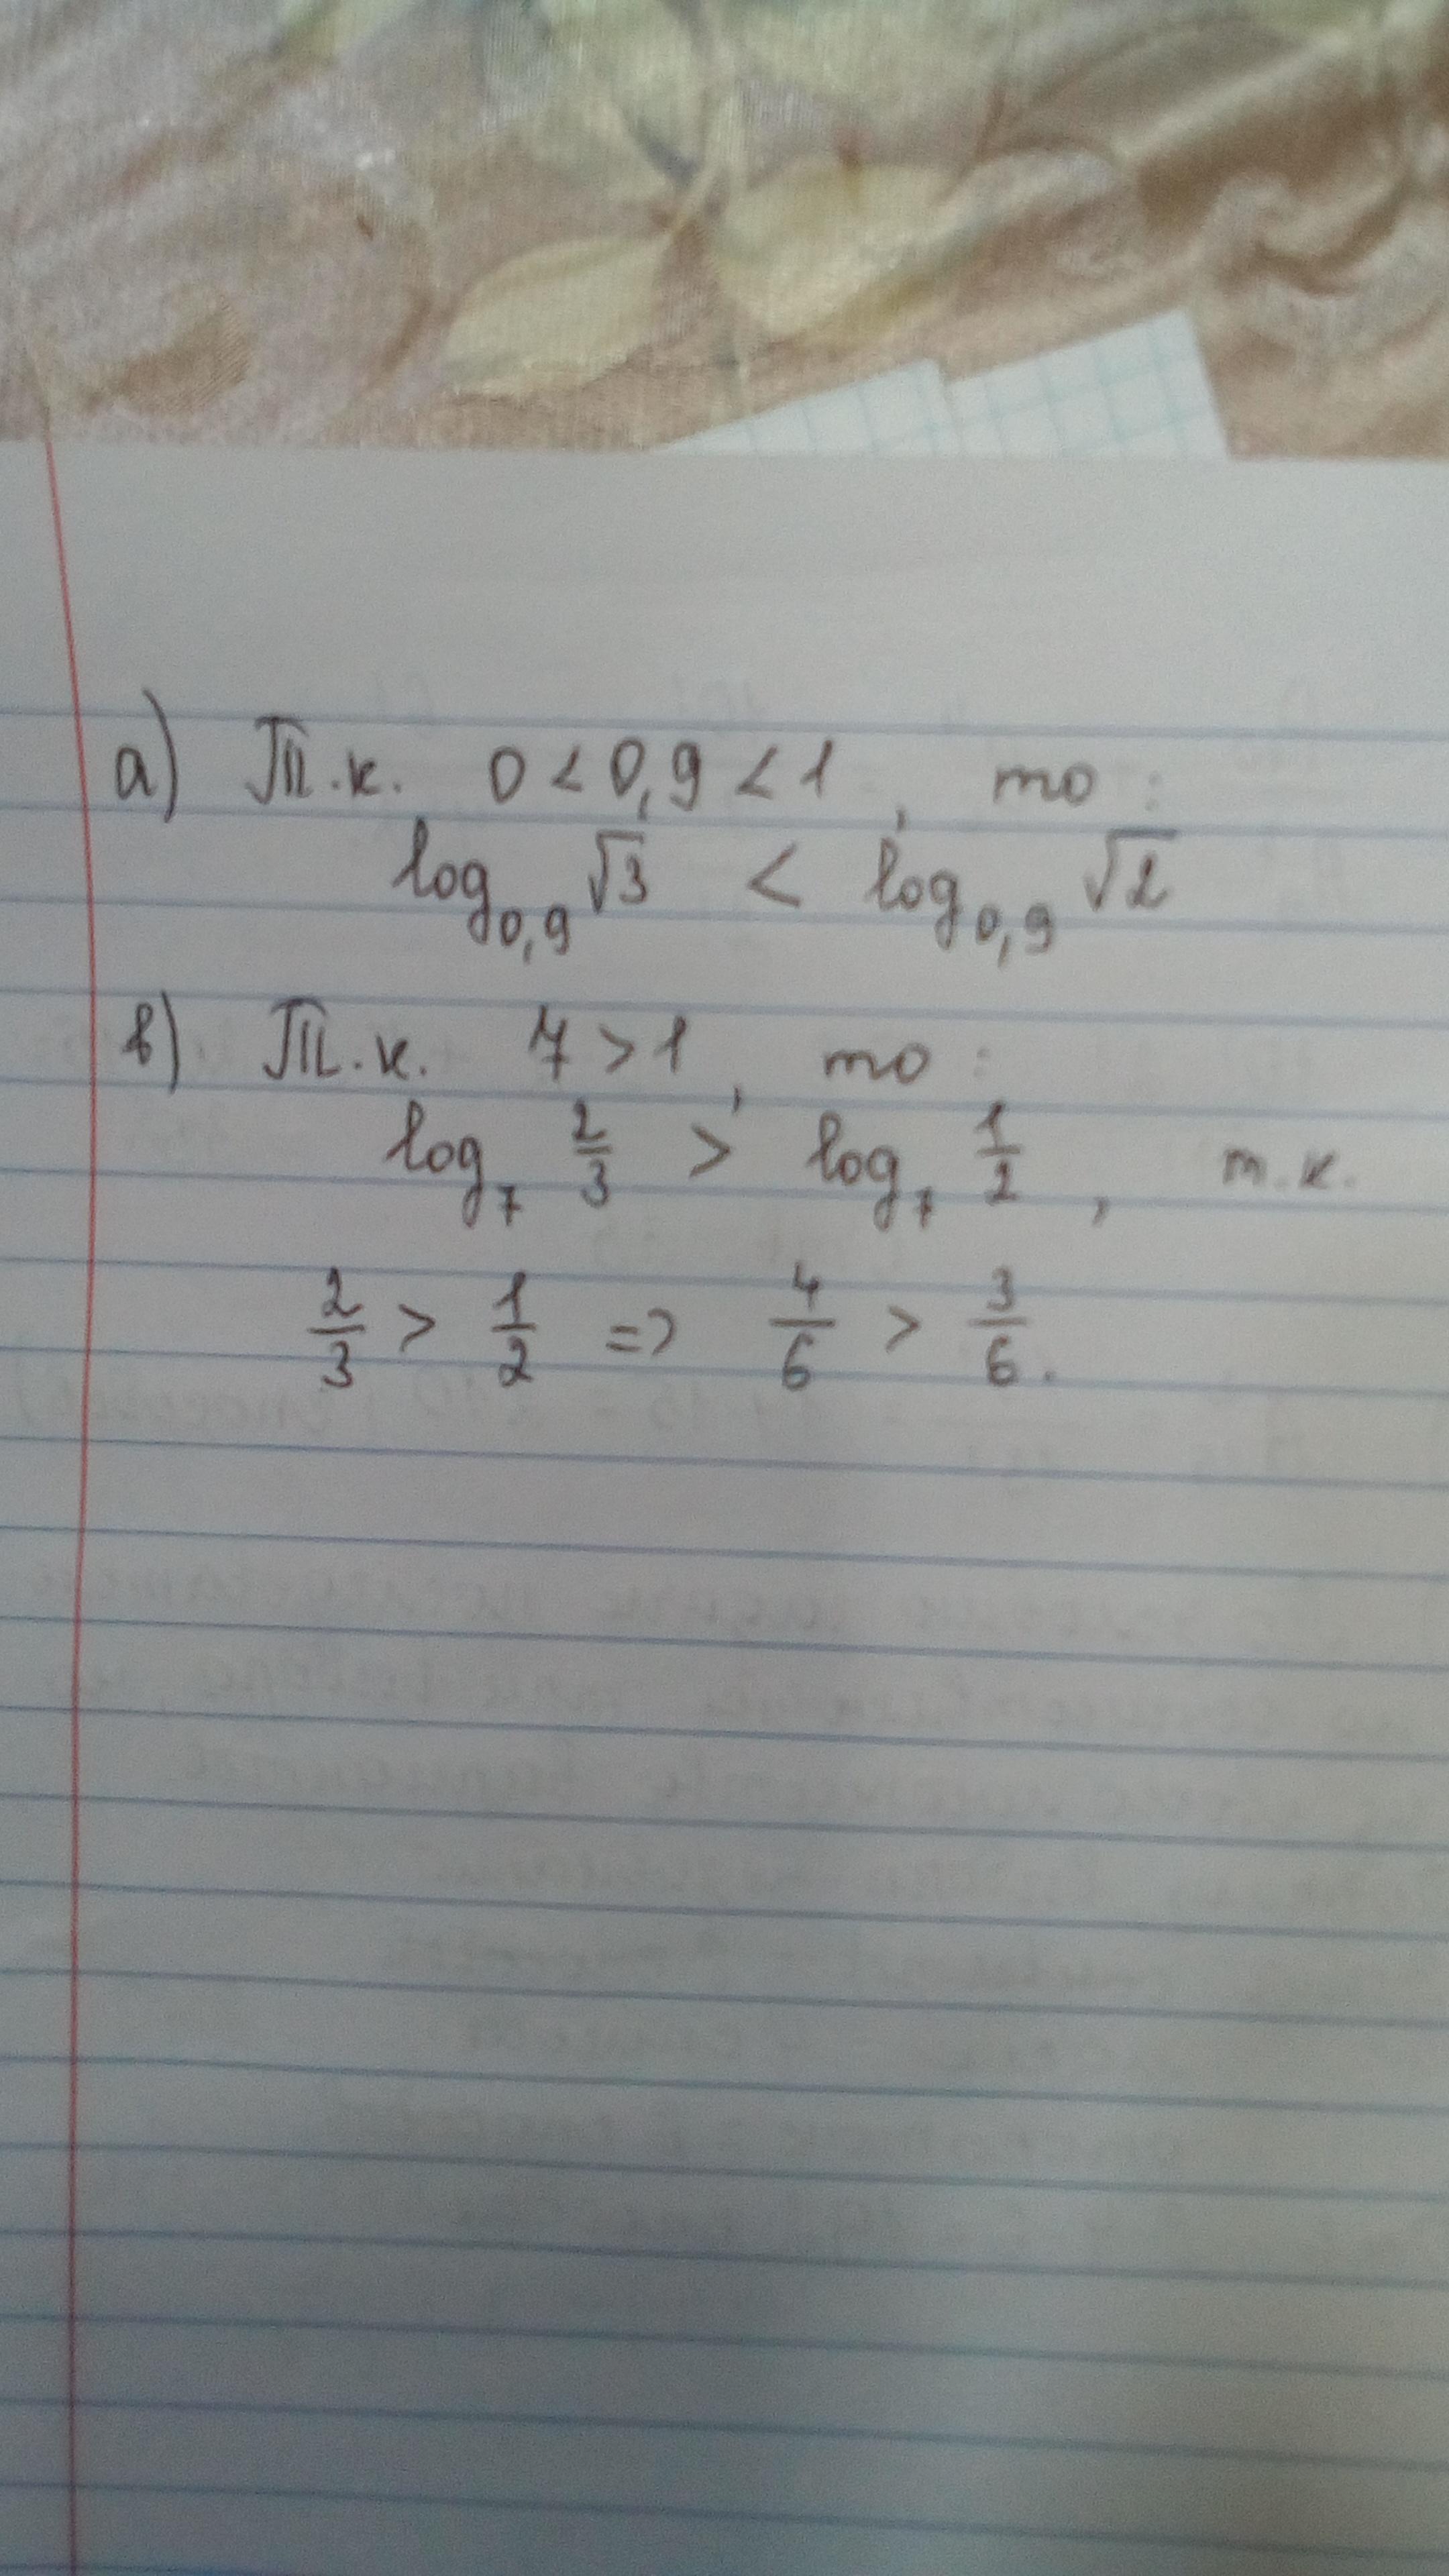 а) Т.к. 0 < 0,9 < 1, то:
log₀,₉ √3 < log₀,₉ √2
в) Т.к. 7 > 1, то:
log₇ 2/3 > log₇ 1/2, т.к.
2/3 > 1/2 => 4/6 > 3/6.